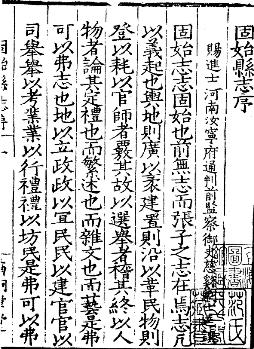 固始縣志序
賜進士河南汝寧府通判前監察御史
固始志志固始也前無志而張子之志在焉志凡
以義起也輿地則廣以袤建置則沿以革民物則
登以耗以官師者覈其故以選舉者稽其終以人
物者論其定禮也而繁述也而雜文也而藝是弗
可以弗志也地以立政政以宜民民以建官官以
司舉舉以考業業以行禮禮以坊民是弗可以弗
固始縣志序